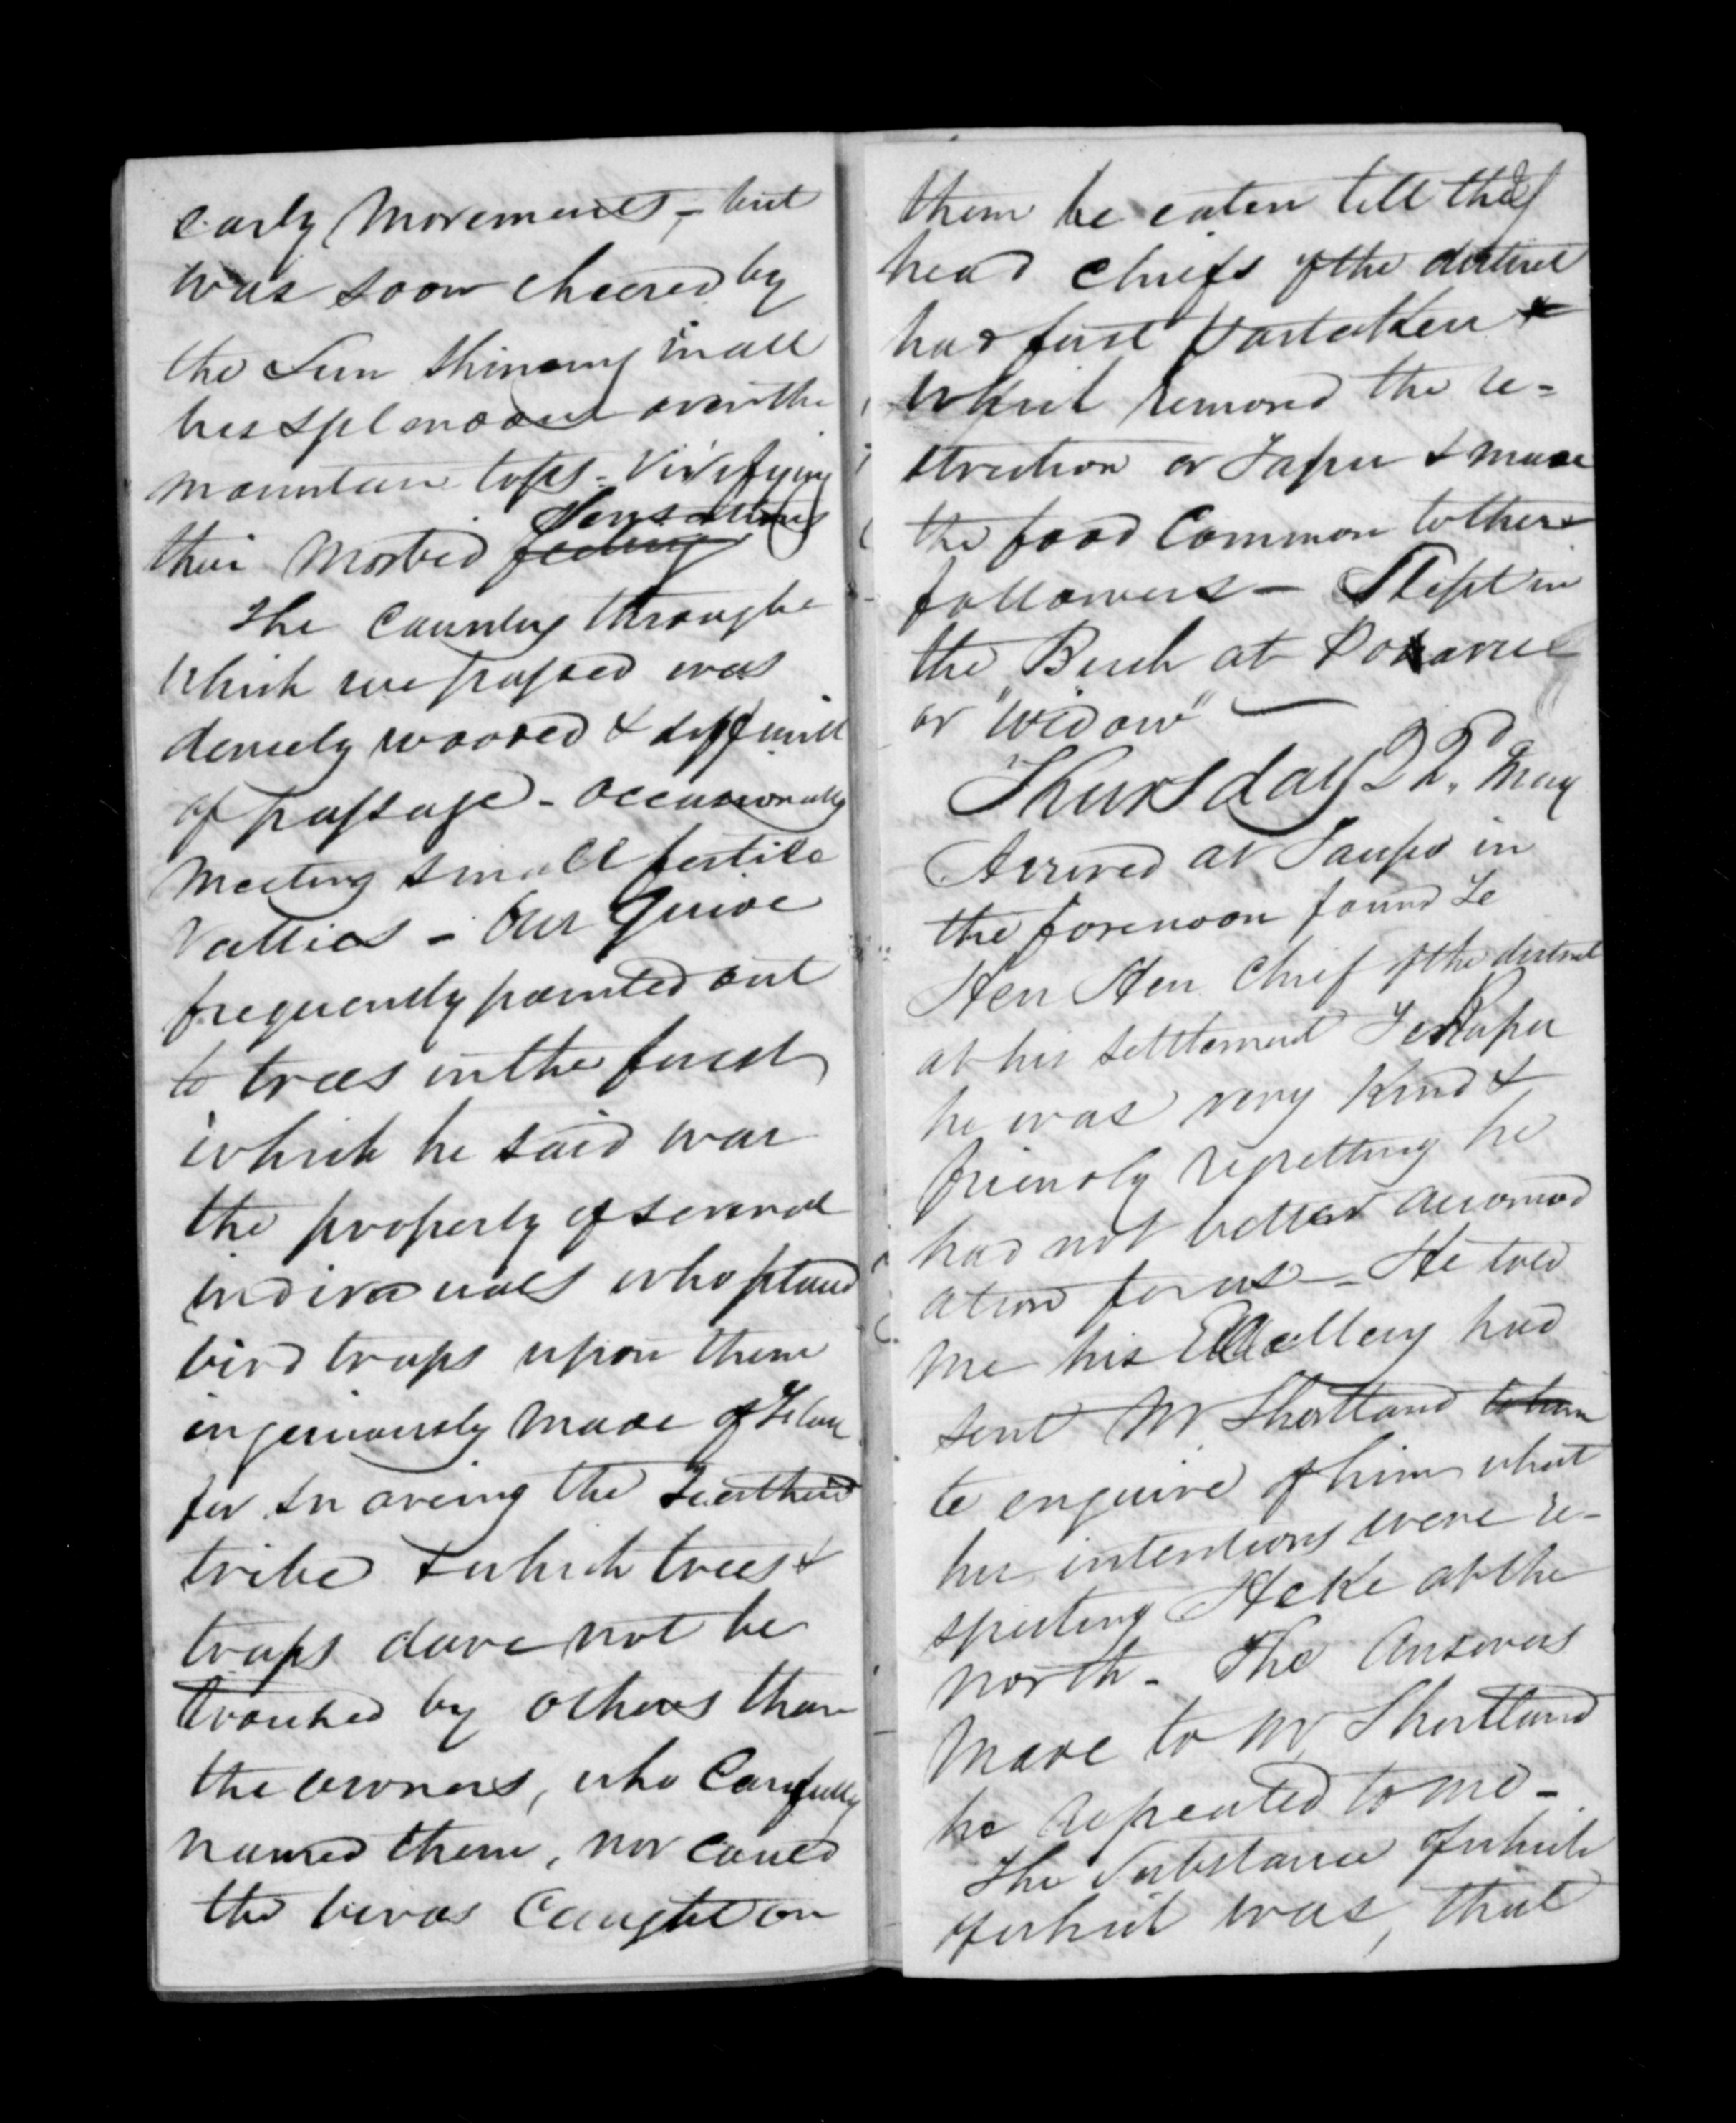 early movements, - but
was soon cheered by
the Sun Shining in all
his splendour over the
mountain tops - Vivifying
Sensations
their Morbid feelings
The Country through
which we passed was
densely wooded & difficult
of passage - Occasionally
Meeting small fertile
Vallies - Our Guide
frequently pointed out
to trees in the forest
which he said was
the property of several
individuals who placed
bird traps upon them
ingeniously made of Flax
for snaring the Feathered
tribe & which trees &
traps dare not be
touched by others than
the owners, who Carefully
named them, nor could
the birds Caught on
them be eaten till the
head chiefs of the district
had first partaken &
which removed the re-
striction or Tapu & made
the food Common to their
followers - Slept in
the Bush at
or "Widow"
Thursday 22d. May
Arrived at Taupo in
the forenoon found Te
Heu Heu Chief of the district
at his settlement Te Rapu
he was very Kind &
friendly regretting he
had not better accomod
ation for us - He told
me his Excellency had
sent Mr Shortland to him
to enquire of him what
his intentions were re-
specting Heke at the
north - The Answers
made to Mr Shortland
he repeated to me -
The Substance of which
of which was, that